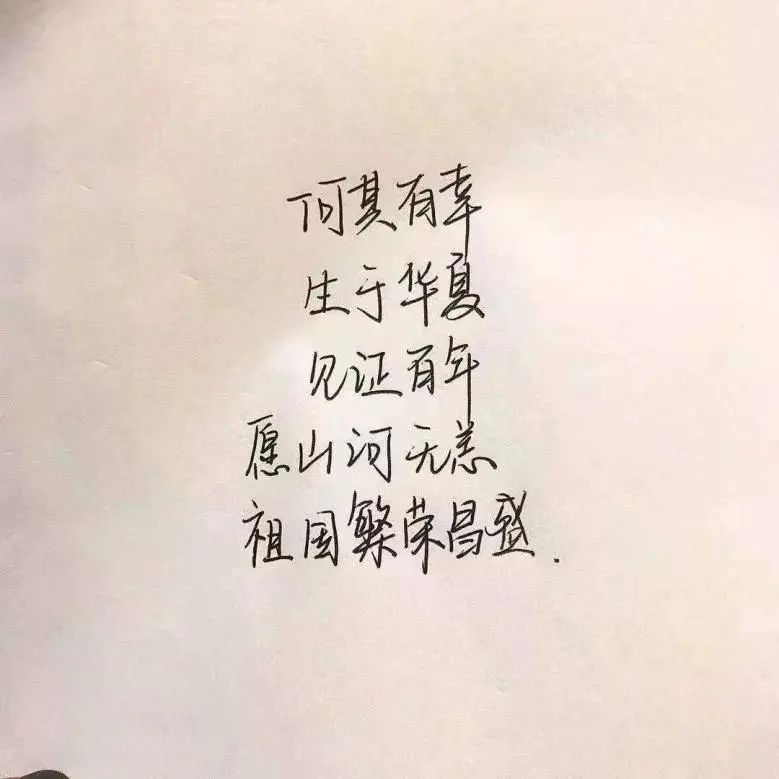 何其有幸
生于华夏
见证百年
愿山河无恙
祖国繁荣昌盛.